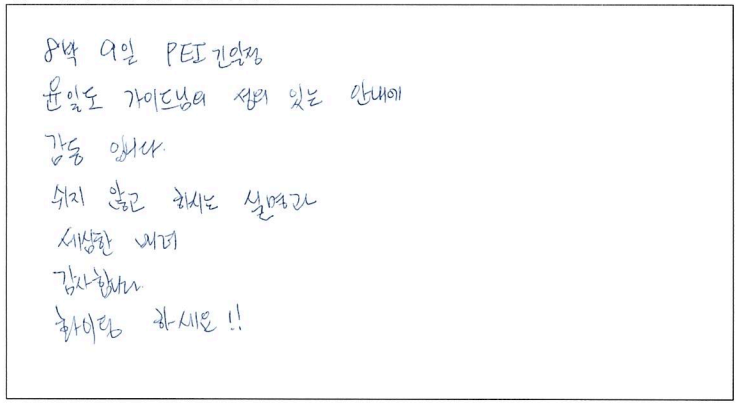 8박 9일 PEI 긴일정
윤일도 가이드님의 성의 있는 안내에
감동 입니다.
쉬지 않고 하시는 설명과
세심한 배려
감사합니다.
화이팅 하세요!!